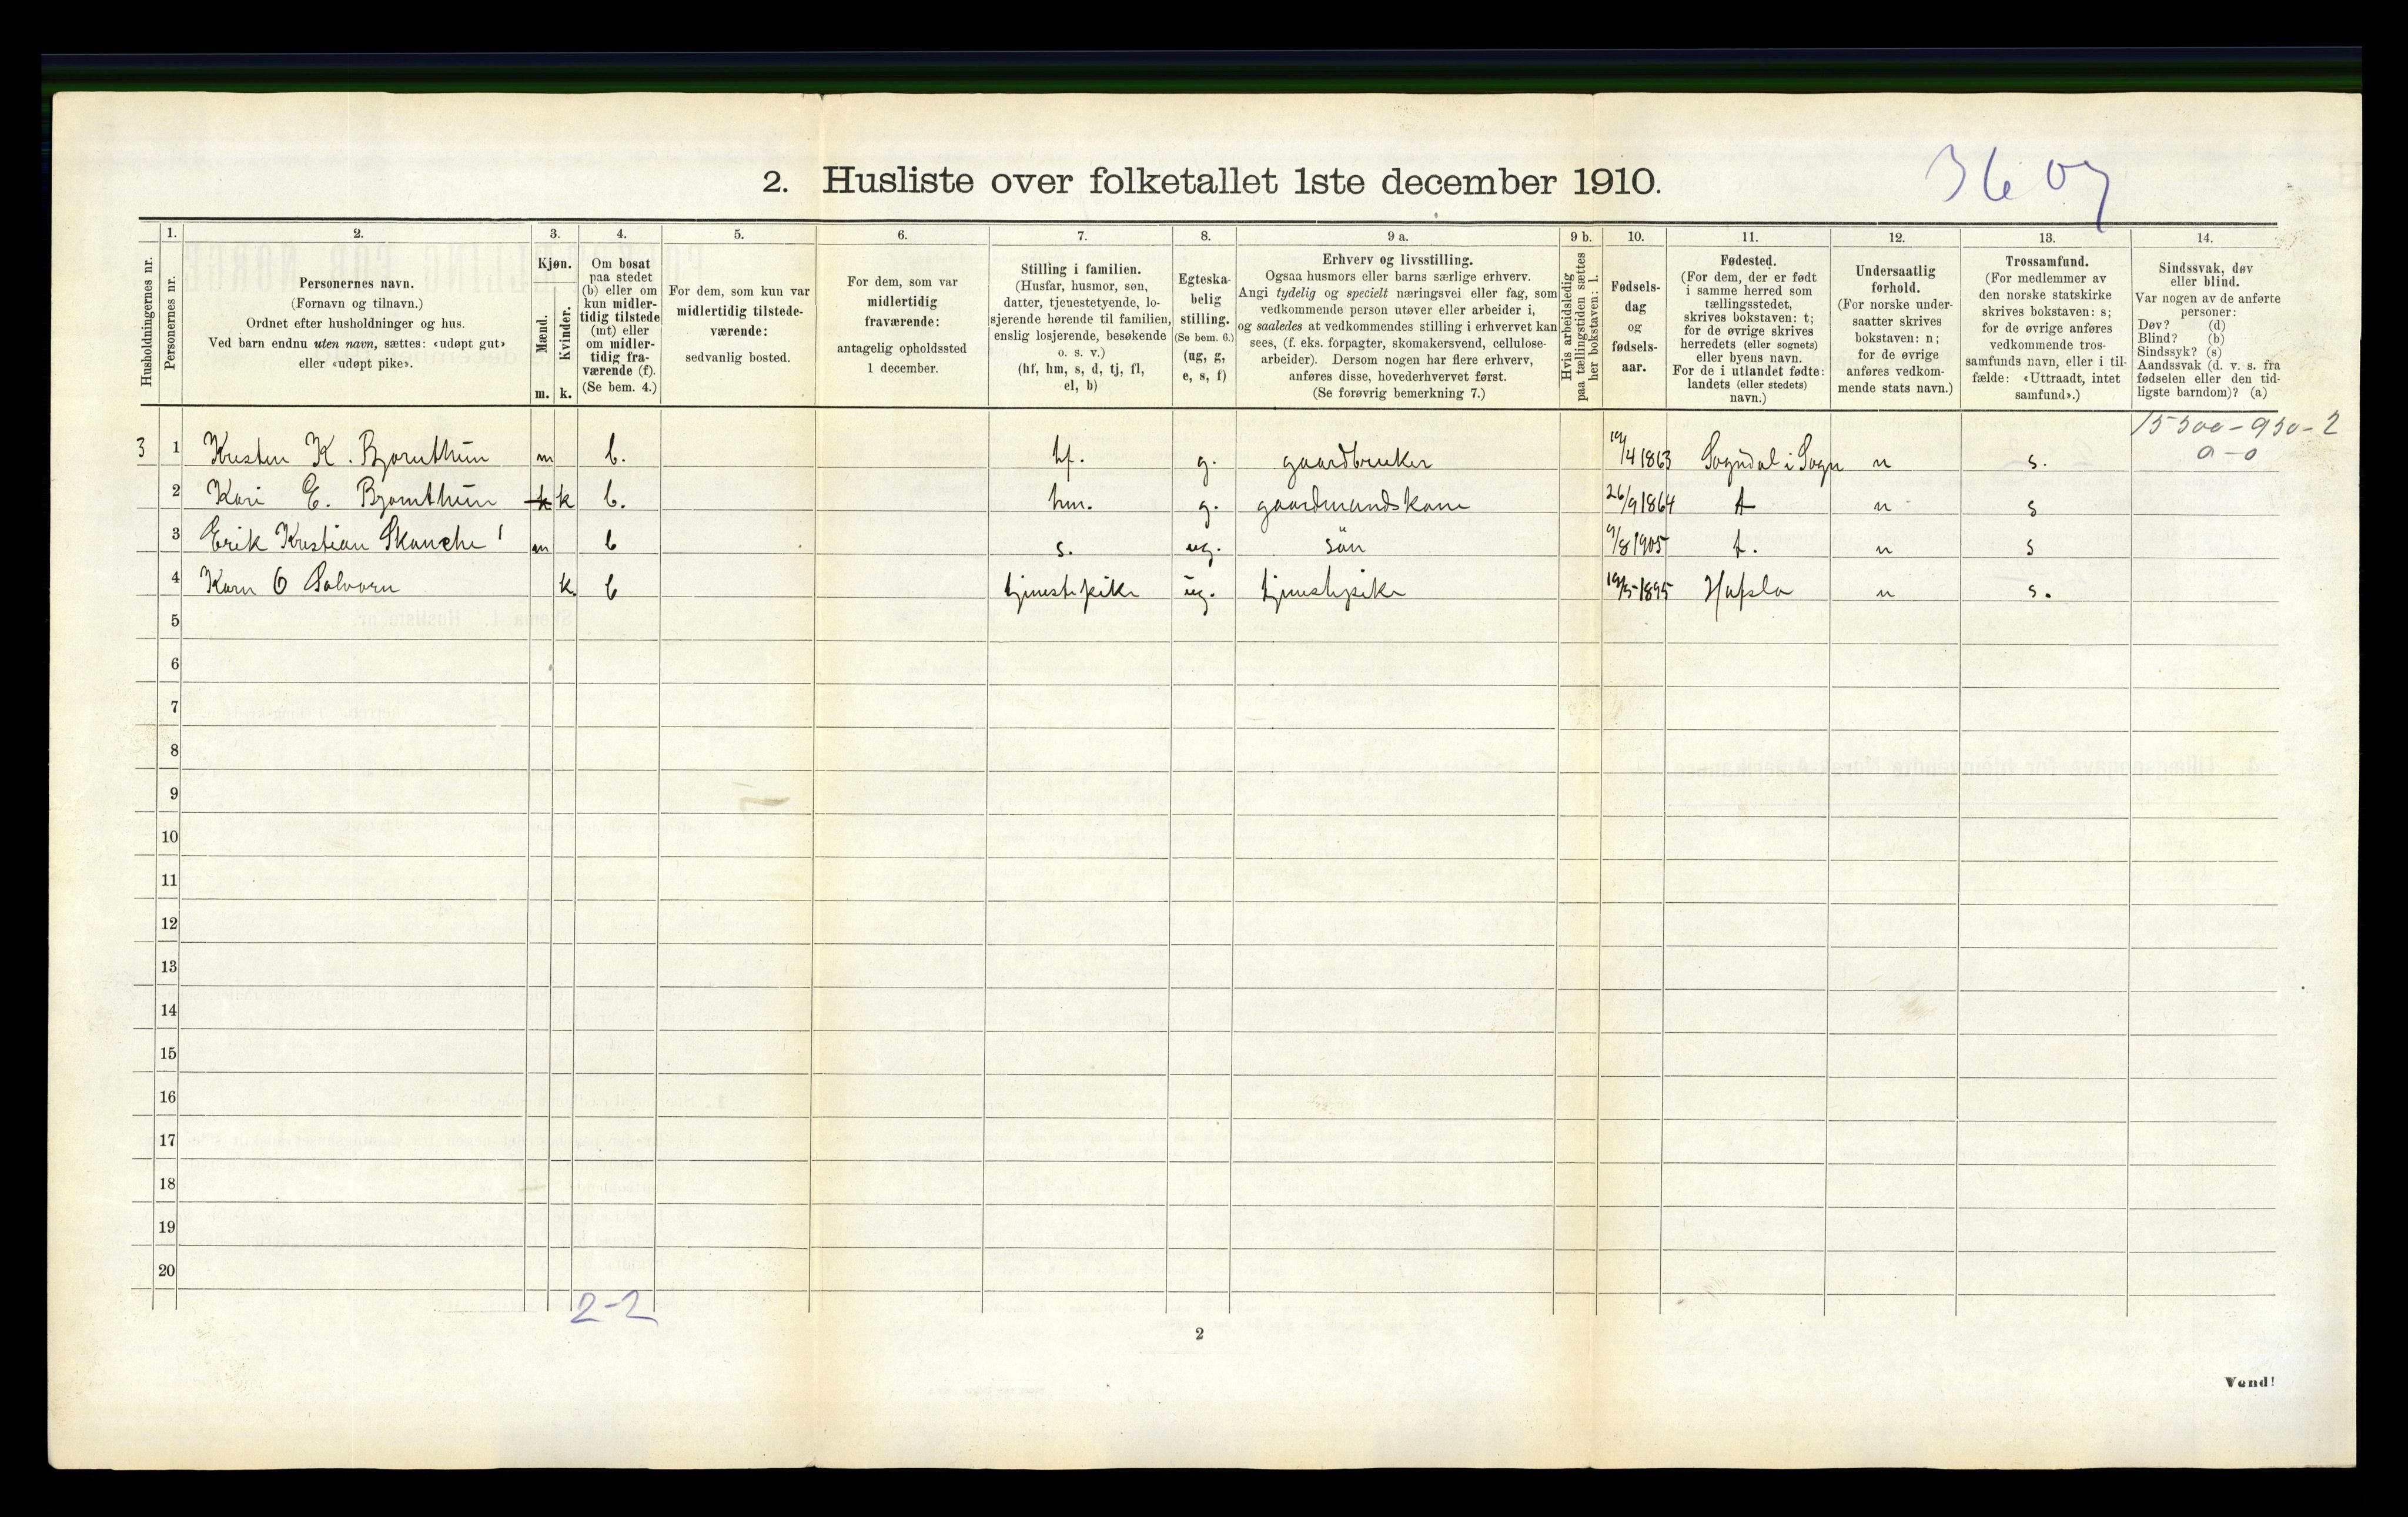 3607
2. Husliste over folketallet 1ste december 1910.
Husholdningernes nr.
1.
Personernes nr.
2.
Personernes navn.
(Fornavn og tilnavn.)
Ordnet efter husholdninger og hus.
Ved barn endnu uten navn, sættes: «udøpt gut»
eller «udøpt pike».
3.
Kjøn.
Mænd.
Kvinder.
m. k.
4.
Om bosat
paa stedet
(b) eller om
kun midler-
tidig tilstede
(mt) eller
om midler-
tidig fra-
værende (f).
(Se bem. 4.)
5.
For dem, som kun var
midlertidig tilstede-
værende:
sedvanlig bosted.
6.
For dem, som var
midlertidig
fraværende:
antagelig opholdssted
1 december.
7.
Stilling i familien.
(Husfar, husmor, søn,
datter, tjenestetyende, lo-
sjerende hørende til familien,
enslig losjerende, besøkende
o. s. v.)
(hf, hm, s, d, tj, fl,
el, b)
8.
Egteska-
belig
stilling.
(Se bem. 6.)
(ug, g,
e, s, f)
9 a.
Erhverv og livsstilling.
Ogsaa husmors eller barns særlige erhverv.
Angi tydelig og specielt næringsvei eller fag, som
vedkommende person utøver eller arbeider i,
og saaledes at vedkommendes stilling i erhvervet kan
sees, (f. eks. forpagter, skomakersvend, cellulose-
arbeider). Dersom nogen har flere erhverv,
anføres disse, hovederhvervet først.
(Se forøvrig bemerkning 7.)
9 b.
Hvis arbeidsledig
paa tællingstiden sættes
her bokstaven: l.
10.
Fødsels-
dag
og
fødsels-
aar.
11.
Fødested.
(For dem, der er født
i samme herred som
tællingsstedet,
skrives bokstaven: t;
for de øvrige skrives
herredets (eller sognets)
eller byens navn.
For de i utlandet fødte:
landets (eller stedets)
navn.)
12.
Undersaatlig
forhold.
(For norske under-
saatter skrives
bokstaven: n;
for de øvrige
anføres vedkom-
mende stats navn.)
13.
Trossamfund.
(For medlemmer av
den norske statskirke
skrives bokstaven: s;
for de øvrige anføres
vedkommende tros-
samfunds navn, eller i til-
fælde: «Uttraadt, intet
samfund».)
14.
Sindssvak, døv
eller blind.
Var nogen av de anførte
personer:
Døv? (d)
Blind? (b)
Sindssyk? (s)
Aandssvak (d. v. s. fra
fødselen eller den tid-
ligste barndom)? (a)
15300-930-2
0-0
3 1 Kristen K. Bjornthun m b. hf. g. gaardbruker 19/4 1863 Sogndal i Sogn n s.
2 Kari E. Bjornthun k k b. hm. g. gaardmandskone 26/9 1864 t n s
3 Erik Kristian Skanche m b s. ug. sön 9/8 1905 t. n s
4 Karn O Solvorn k. b tjenestepike ug. tjenestepike 19/5-1895 Hafslo n s.
5
6
7
8
9
10
11
12
13
14
15
16
17
18
19
20
2-2
2
Vend!